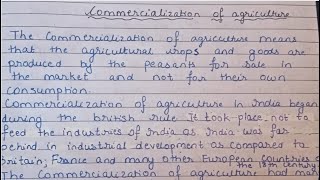 Commercialization of agriculture
The Commercialization of agriculture means
that the agricultural crops and goods are
produced by the peasants for sale in
the market and not for their own
consumption.
Commercialization of agriculture in India began
during the british rule It took place not to
feed the industries of India as India was far
behind in industrial development as compared to
Britain, France and many other European Countries of
the 18th century
The Commercialization of agriculture had